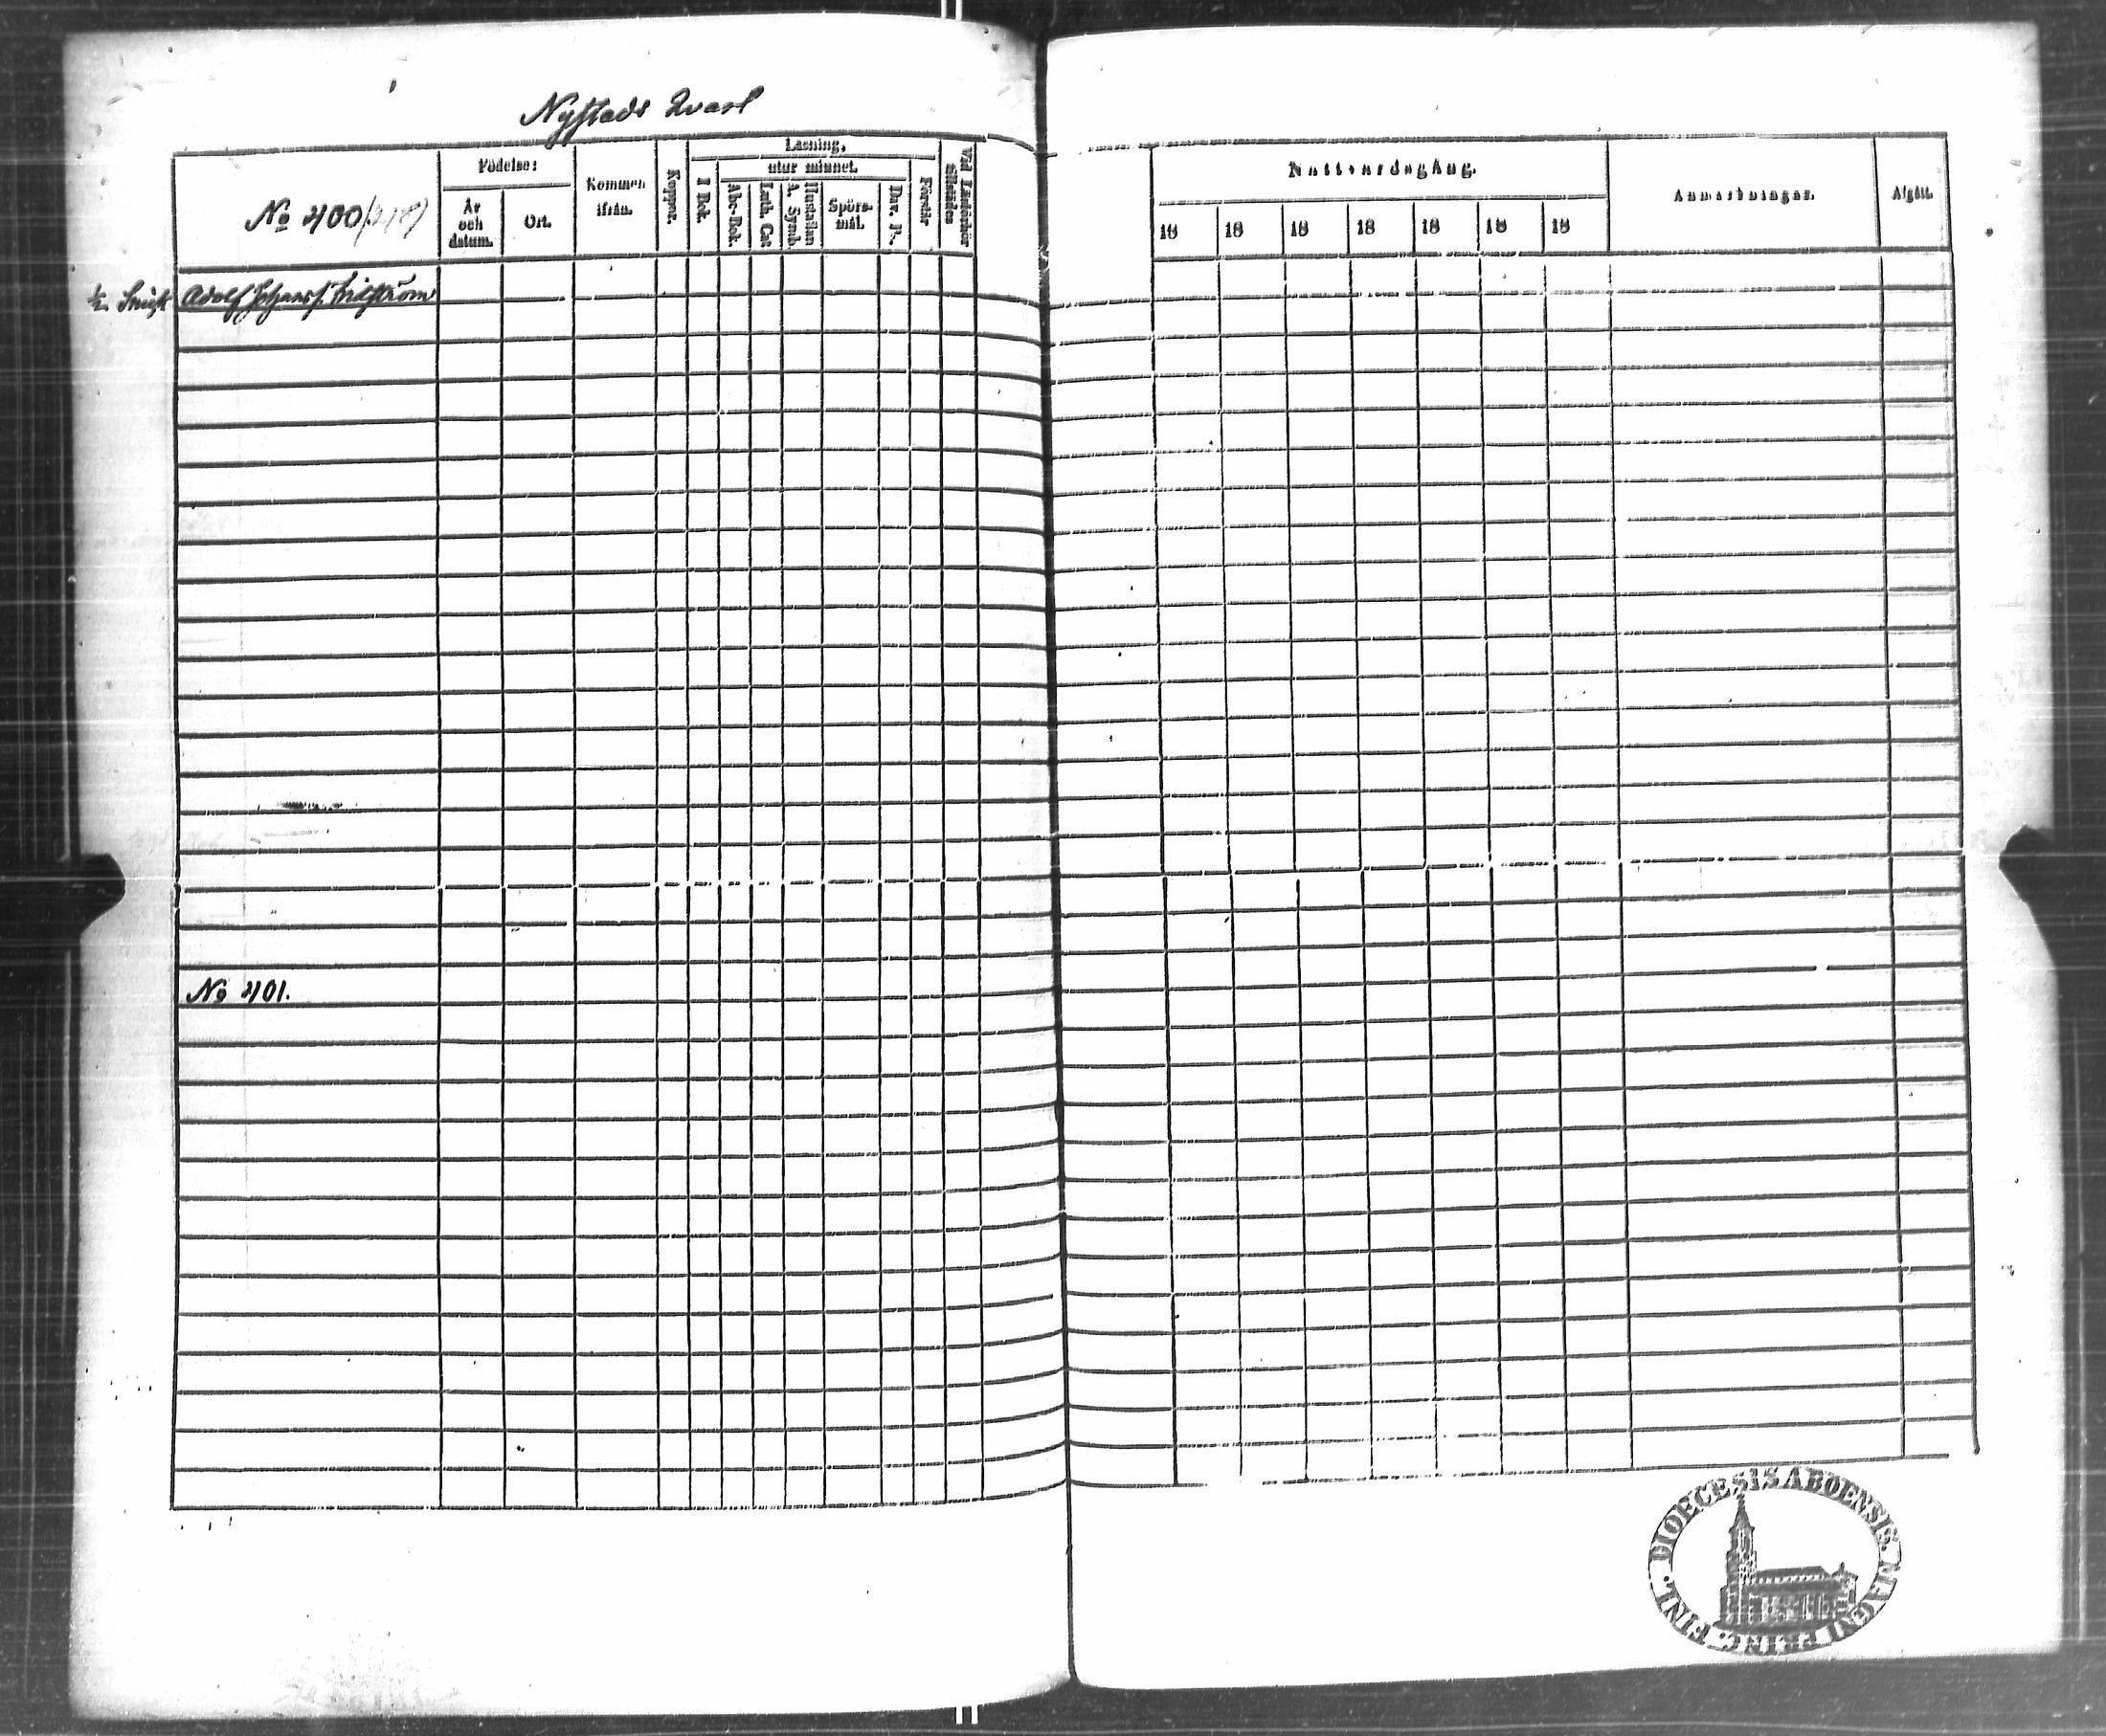 Nystads
No 400
Födelse:
År och datum.
Ort.
Kommen ifrån.
Koppor.
Läsning,
I Bok.
utur minnet.
Abc-Bok.
Luth. Cat
A. Symb.
Hustaflan
Spörsmål.
Dav. Ps.
Förstår
Vid Läsförhör tillstädes
Nattvardsgång.
18 18 18 18 18 18 18
Anmärkningar.
Afgått.
Adolf
No 401.
DIOECESIS ABOENSIS. MAGNI PRINC. FINL.